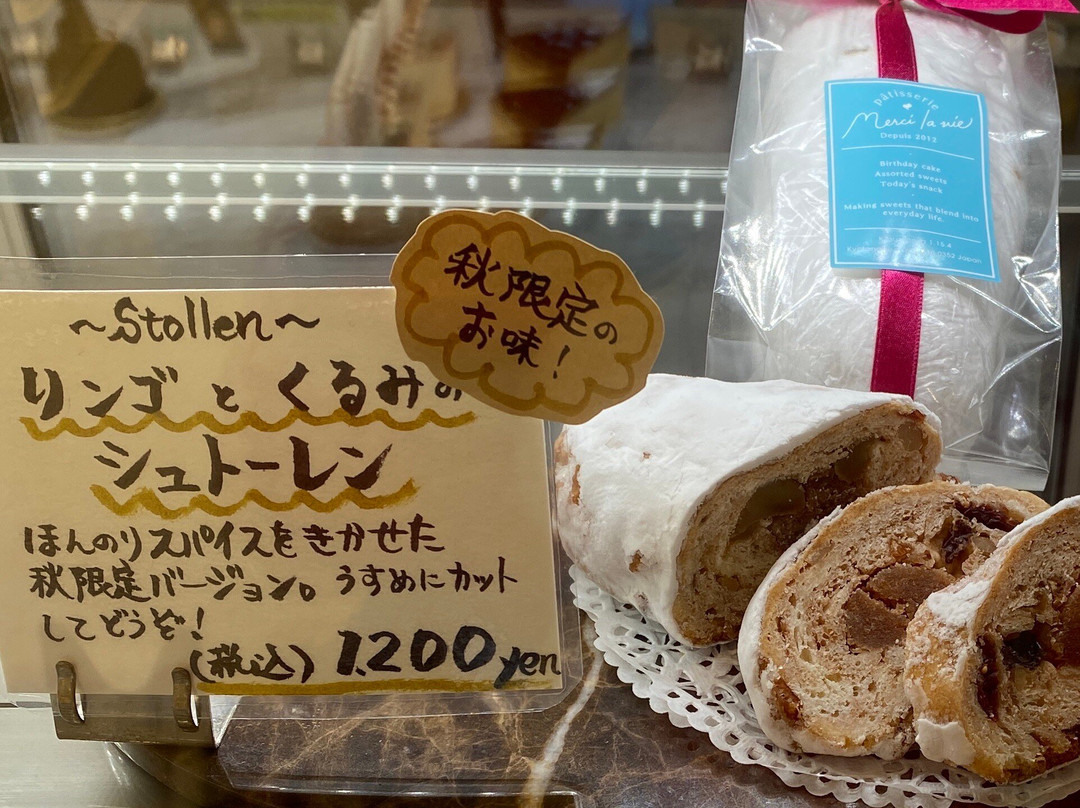 ~Stollen~
リンゴ と くるみの
シュトーレン
ほんのりスパイスをきかせた
秋限定バージョン。うすめにカット
してどうぞ!
(税込) 1.200yen
秋限定の
お味!
pâtisserie
Merci la vie
Depuis 2012
Birthday cake
Assorted sweets
Today's snack
Making sweets that blend into
everyday life.
Japan